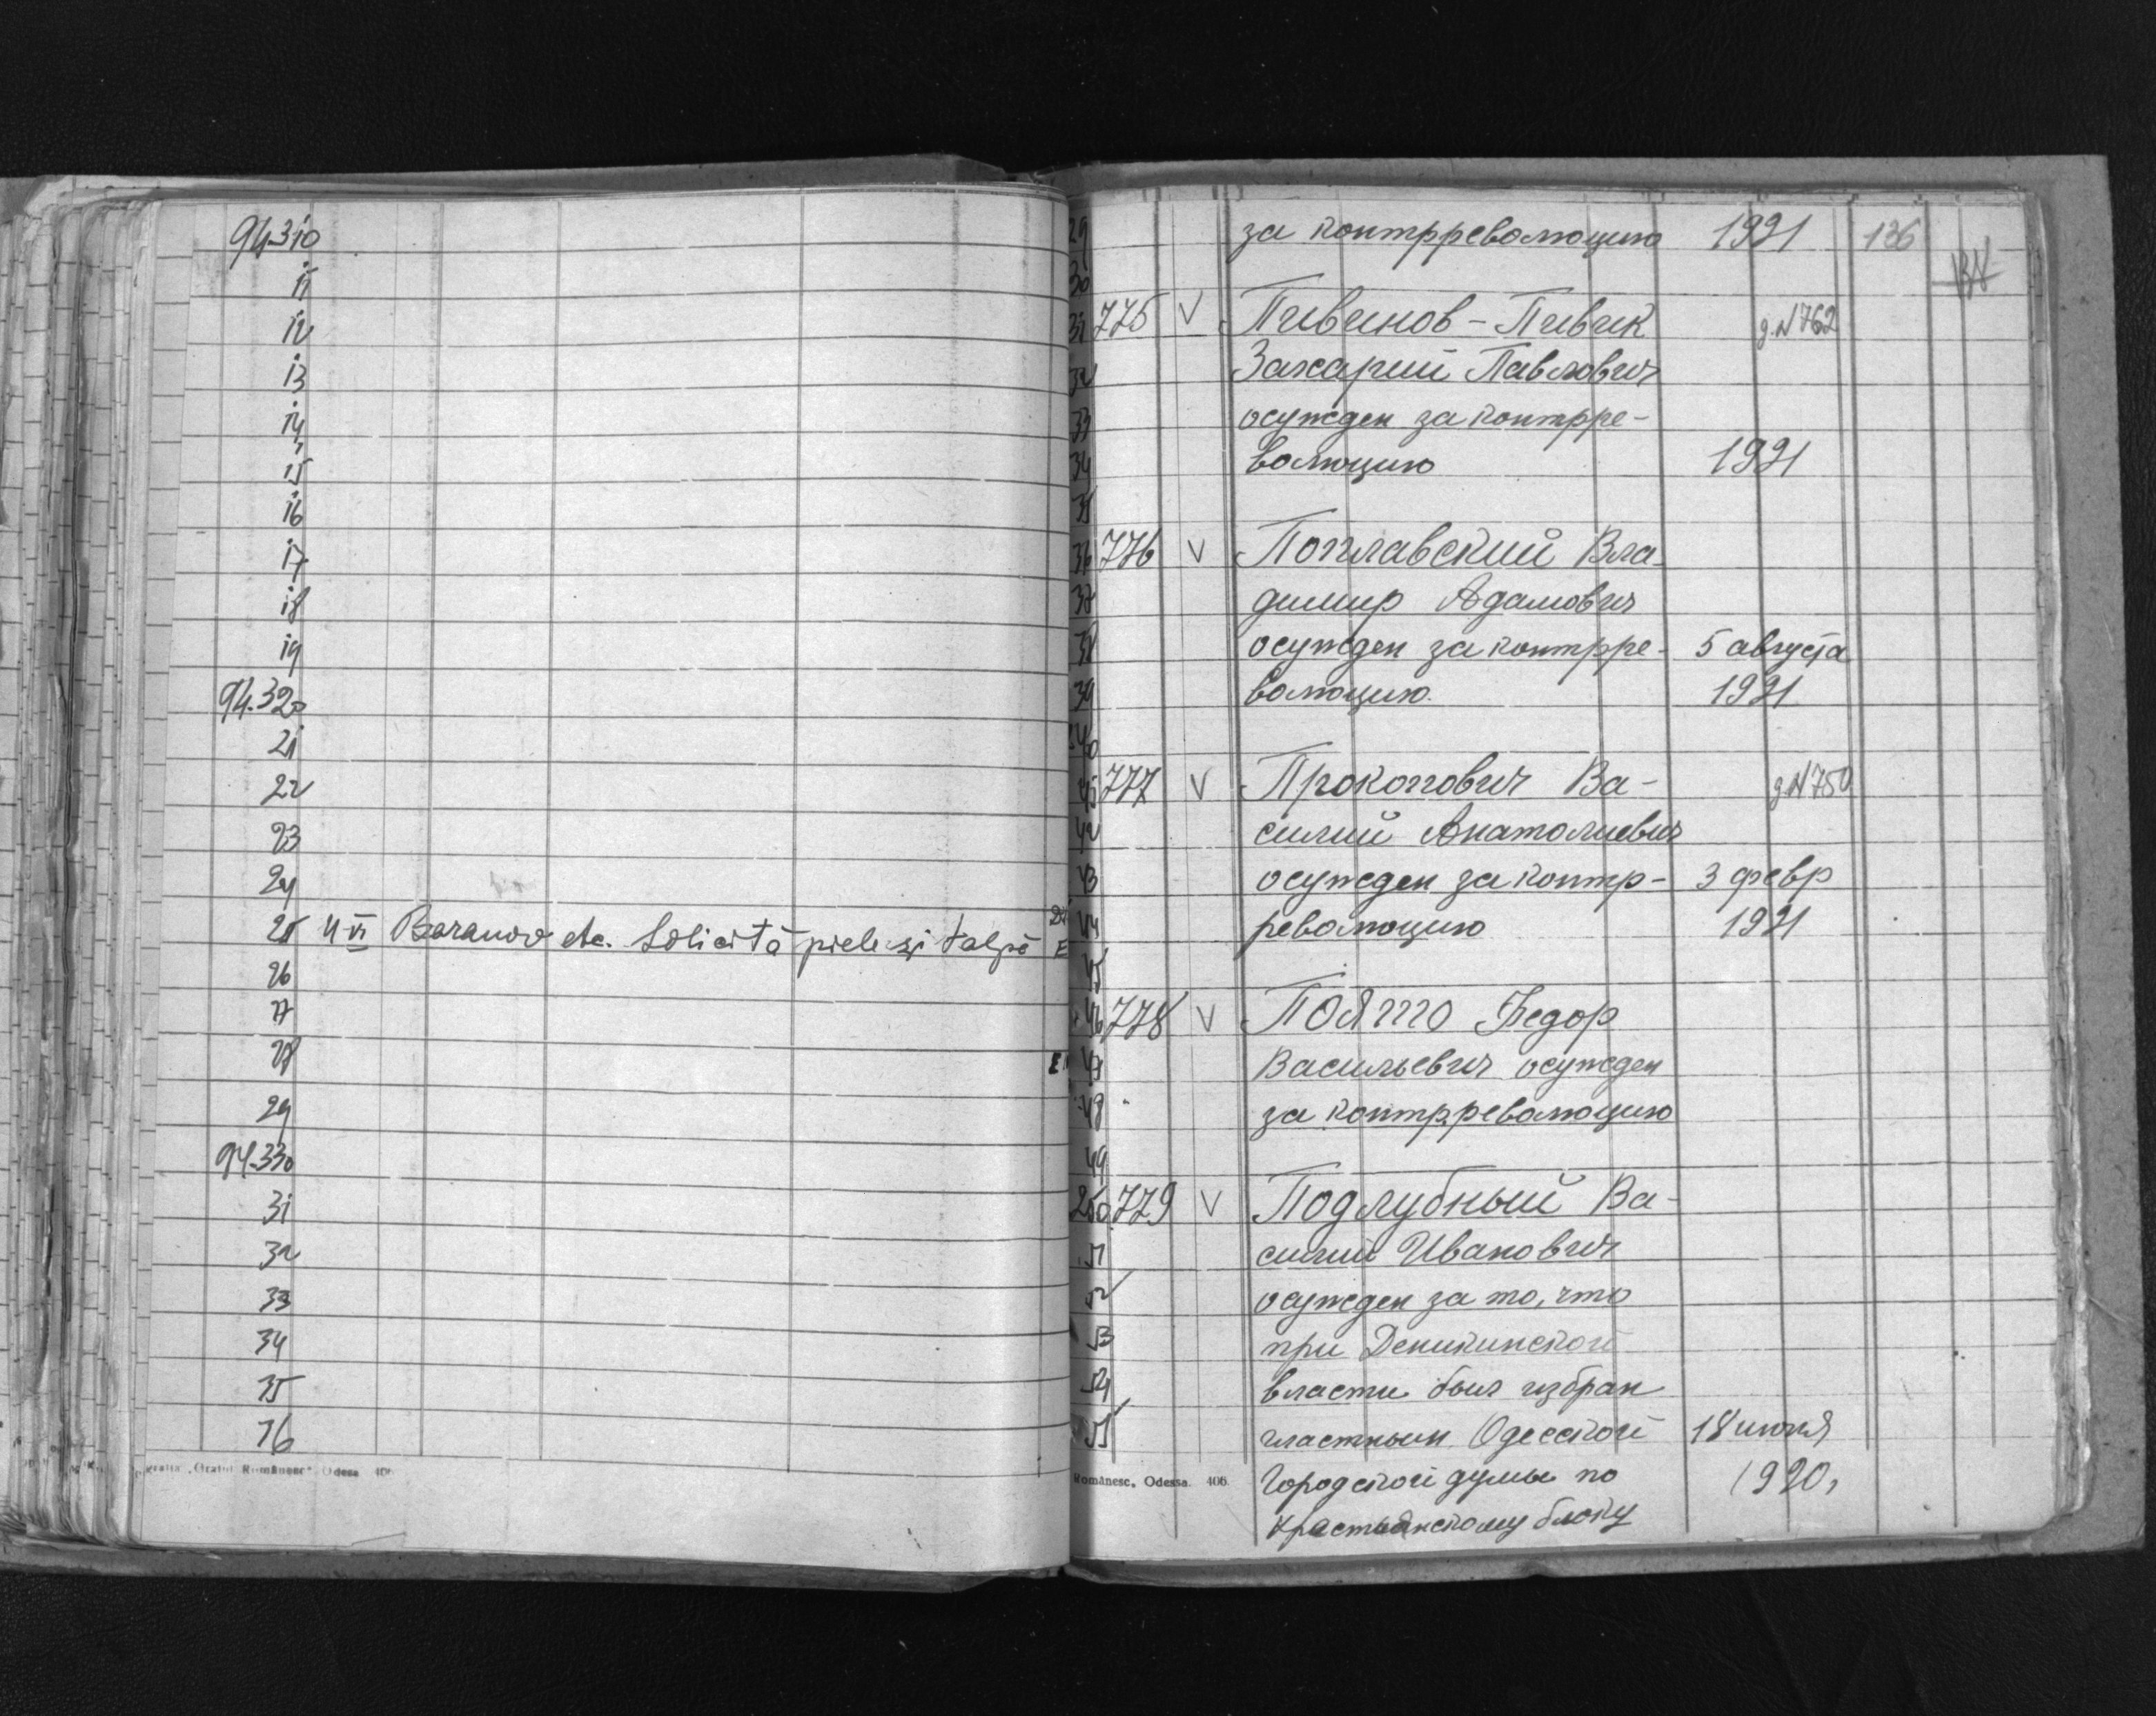 94.310
11
12
13
14
15
16
17
18
19
94.320
21
22
23
24
25 4 VI Baranov etc. Solicită piele și talpă
26
27
28
29
94.330
31
32
33
34
35
36
"Graiul Românesc" Odesa 406
29 за контрреволюцию 1921 136
30
31 775 V Пивинов-Пивик д.N762
32 Захарий Павлович
33 осужден за контрре-
34 волюцию 1921
35
36 776 V Поплавский Вла-
37 димир Адамович
38 осужден за контрре- 5 августа
39 волюцию. 1921
240
41 777 V Прокопович Ва- д.N750
42 силий Анатолиевич
43 осужден за контр- 3 февр
44 революцию 1921
45
46 778 V Поятто Федор
47 Васильевич осужден
48 за контрреволюцию
49
250 779 V Подлубный Ва-
51 силий Иванович
52 осужден за то, что
53 при Деникинской
54 власти был избран
55 гластным Одесской 18 июня
Românesc, Odessa. 406 городской думы по 1920,
крастьянскому блоку